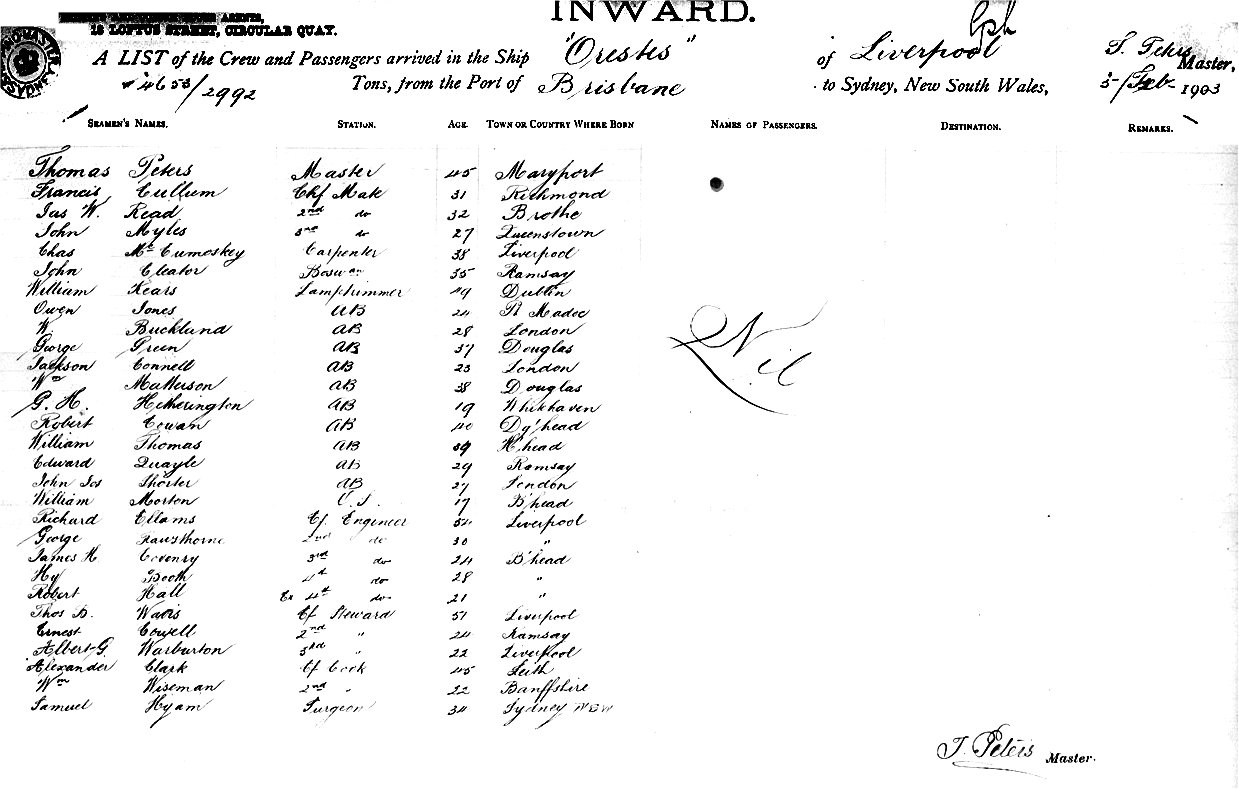 INWARD.
AGENTS,
18 LOFTUS STREET, CIRCULAR QUAY.
A LIST of the Crew and Passengers arrived in the Ship "Orestes" of Liverpool T. Peters Master,
4653/2992 Tons, from the Port of Brisbane to Sydney, New South Wales, 5/Feb 1903
SEAMEN'S NAMES. STATION. AGE. TOWN OR COUNTRY WHERE BORN NAMES OF PASSENGERS. DESTINATION. REMARKS.
Thomas Peters Master 45 Maryport
Francis Cullum Chf Mate 31 Richmond
Jas W. Read 2nd do 32
John Myles 3rd do 27 Queenstown
Chas McCumoskey Carpenter 38 Liverpool
John Cleator Boswan 35 Ramsay
William Kears Lamptrimmer 49 Dublin
Owen Jones AB 24 Pt Madoc
W. Bucklund AB 28 London
George Green AB 37 Douglas
Jackson Connell AB 23 London
Wm Matterson AB 38 Douglas
G. H. Hetherington AB 19 Whitehaven
Robert Cowan AB 40
William Thomas AB 39 H'head
Edward Quayle AB 29 Ramsay
John Jos Shorter AB 27 London
William Morton O.S. 17 B'head
Richard Ellams Cf. Engineer 54 Liverpool
George Hawthorne 2nd do 30 "
James H Coventry 3rd do 24 B'head
Hy Booth 4th do 28 "
Robert Hall Ex 4th do 21 "
Thos D. Cf Steward 51 Liverpool
Ernest Cowell 2nd " 24 Ramsay
Albert G. Warburton 3rd " 22 Liverpool
Alexander Clark Cf Cook 45 Leith
Wm Wiseman 2nd " 22 Banffshire
Samuel Hyam Surgeon 34 Sydney NSW
Nil
T. Peters Master.